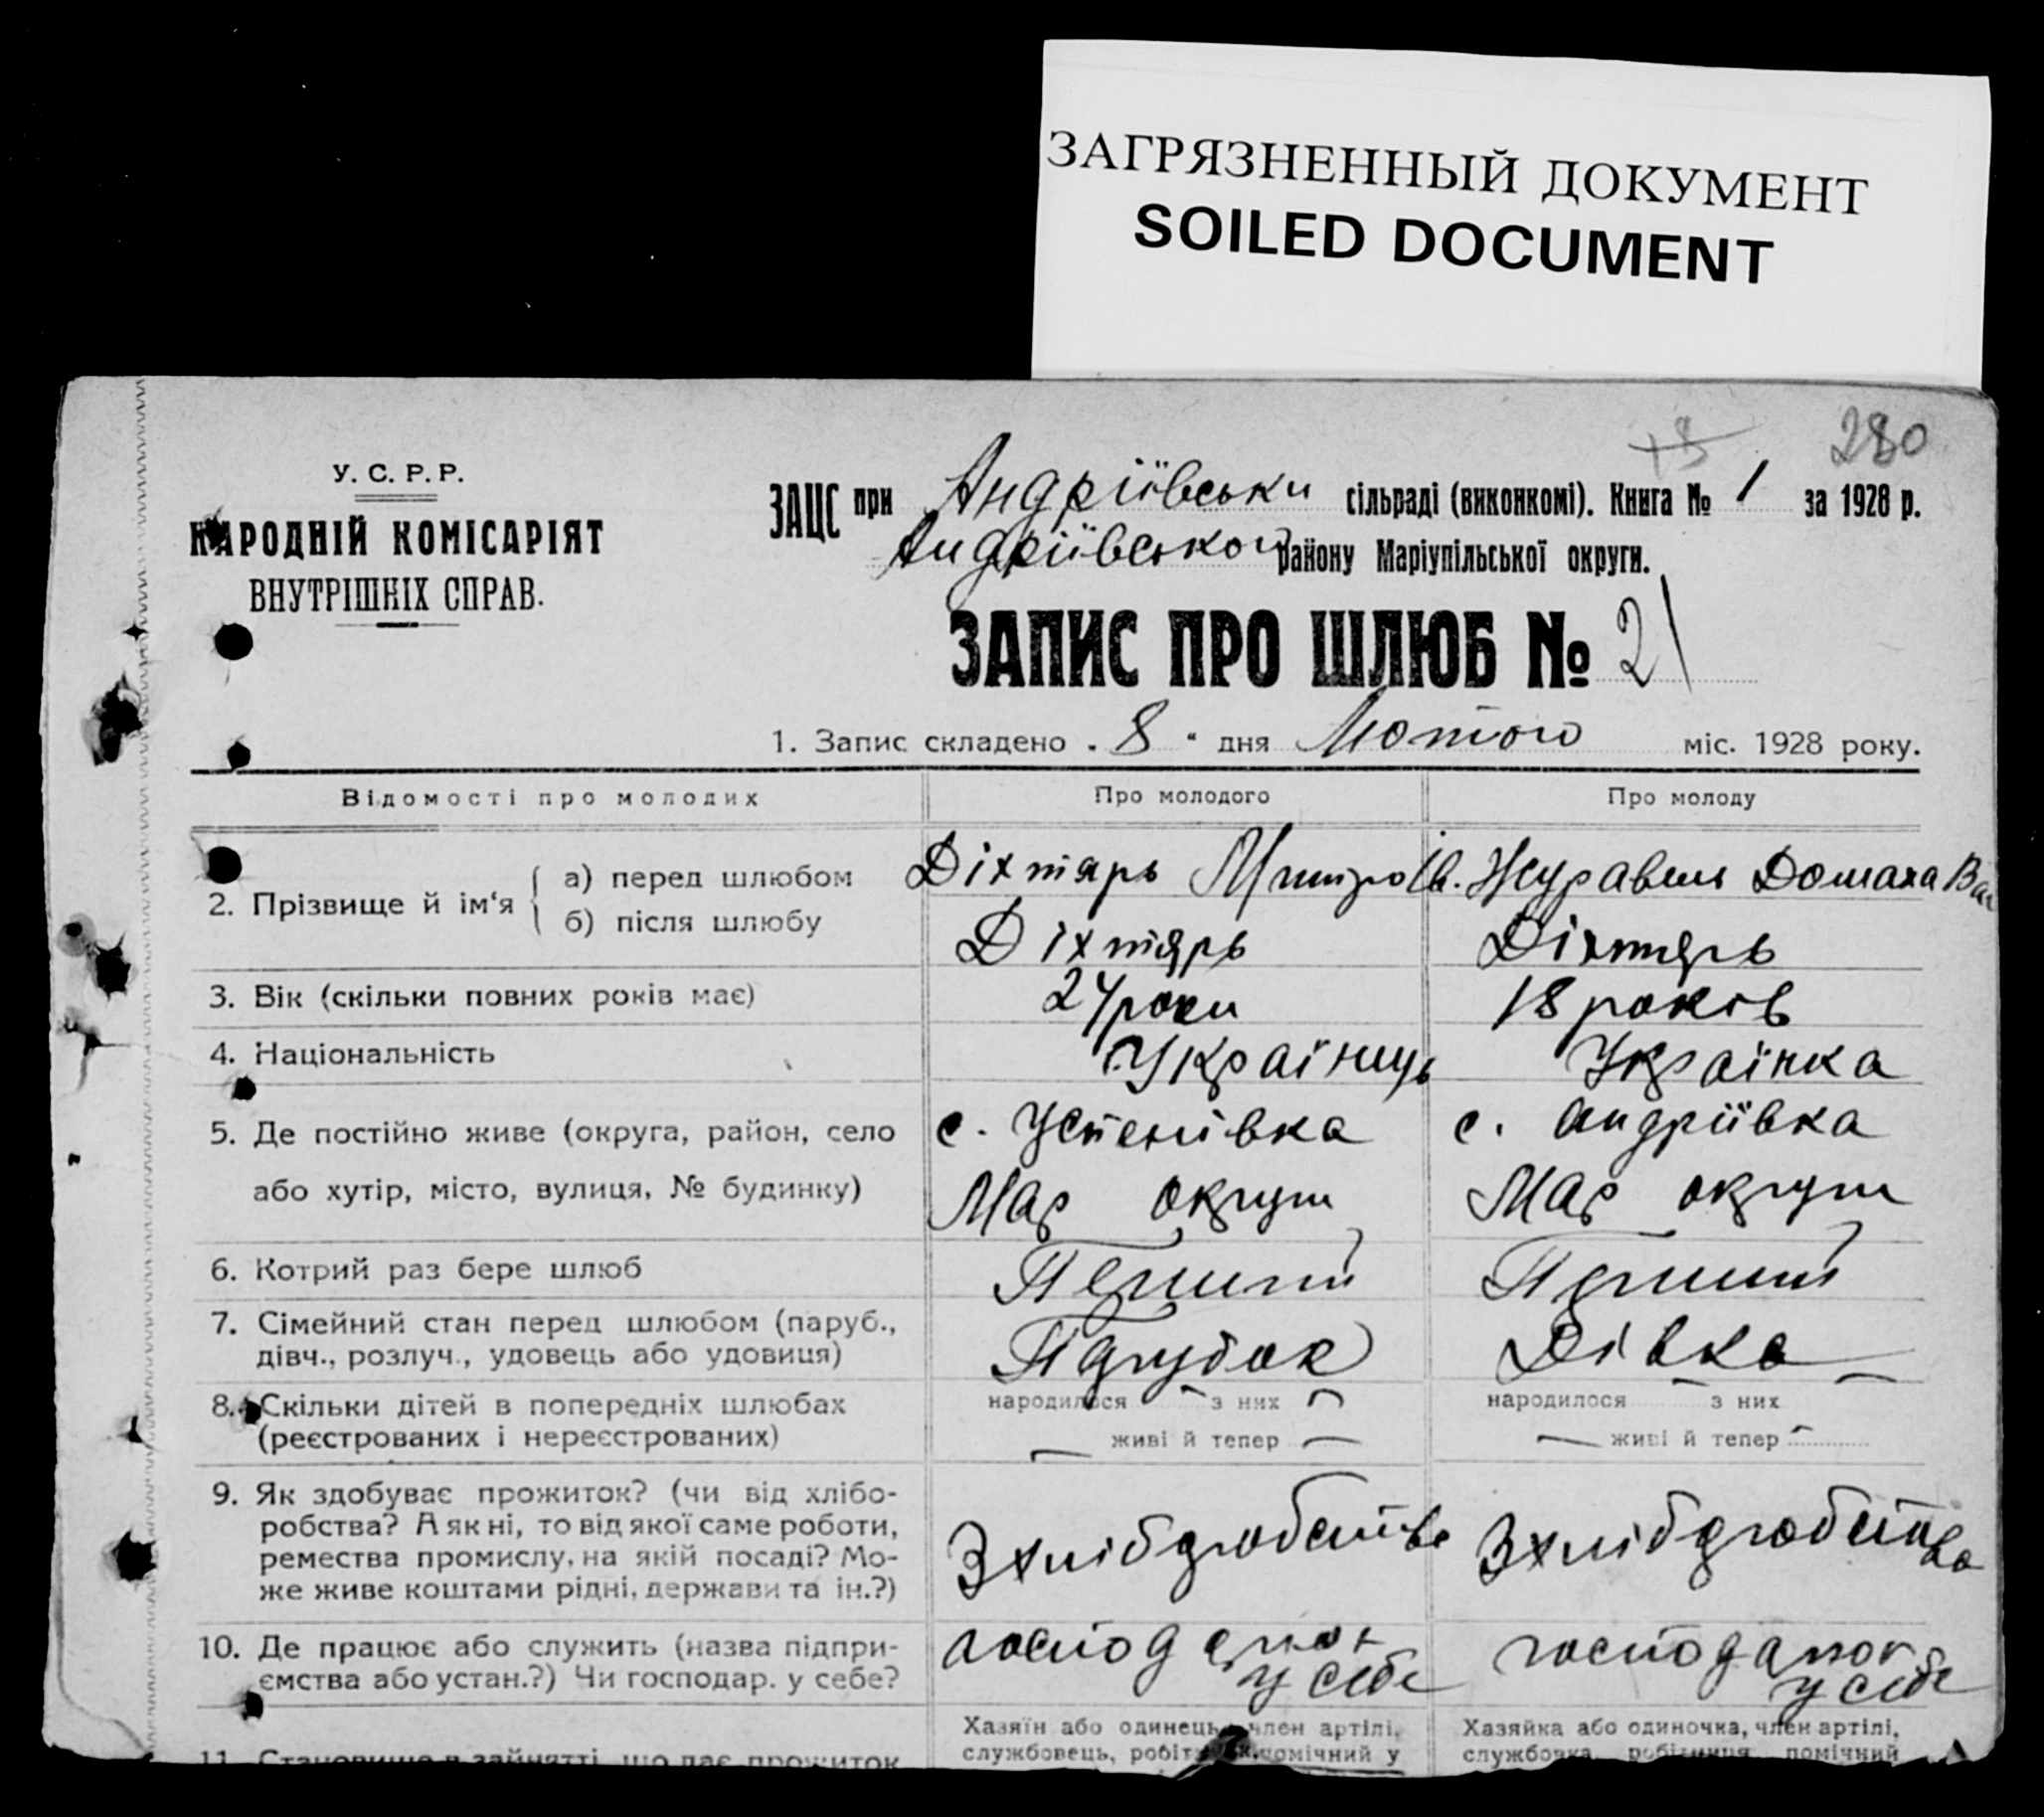 ЗАГРЯЗНЕННЫЙ ДОКУМЕНТ
SOILED DOCUMENT
280
У. С. Р. Р.
НАРОДНІЙ КОМІСАРІЯТ
ВНУТРІШНІХ СПРАВ.
ЗАЦС при Андріївськи сільраді (виконкомі). Книга № 1 за 1928 р.
Андріївського району Маріупільської округи.
ЗАПИС ПРО ШЛЮБ № 21
1. Запис складено „ 8 " дня Лютого міс. 1928 року.
Відомості про молодих Про молодого Про молоду
2. Прізвище й ім'я
а) перед шлюбом Діхтярь Митро Ів. Журавель Домаха Вас
б) після шлюбу Діхтярь Діхтярь
3. Вік (скільки повних років має) 24 роки 18 років
4. Національність Українець Українка
5. Де постійно живе (округа, район, село с. Успенівка с. Андріївка
або хутір, місто, вулиця, № будинку) Мар округи Мар округи
6. Котрий раз бере шлюб Перший Перший
7. Сімейний стан перед шлюбом (паруб., Парубок Дівка
дівч., розлуч., удовець або удовиця)
8. Скільки дітей в попередніх шлюбах народилося — з них — народилося — з них
(реєстрованих і нереєстрованих) — живі й тепер — — живі й тепер —
9. Як здобуває прожиток? (чи від хлібо-
робства? А як ні, то від якої саме роботи,
ремества промислу, на якій посаді? Мо- З хліборобства З хліборобства
же живе коштами рідні, держави та ін.?)
10. Де працює або служить (назва підпри-
ємства або устан.?) Чи господар. у себе? у себе у себе
Хазяїн або одинець, член артілі, Хазяйка або одиночка, член артілі,
11. Становище в зайнятті, що дає прожиток службовець, помічний у службовка, робітниця, помічний